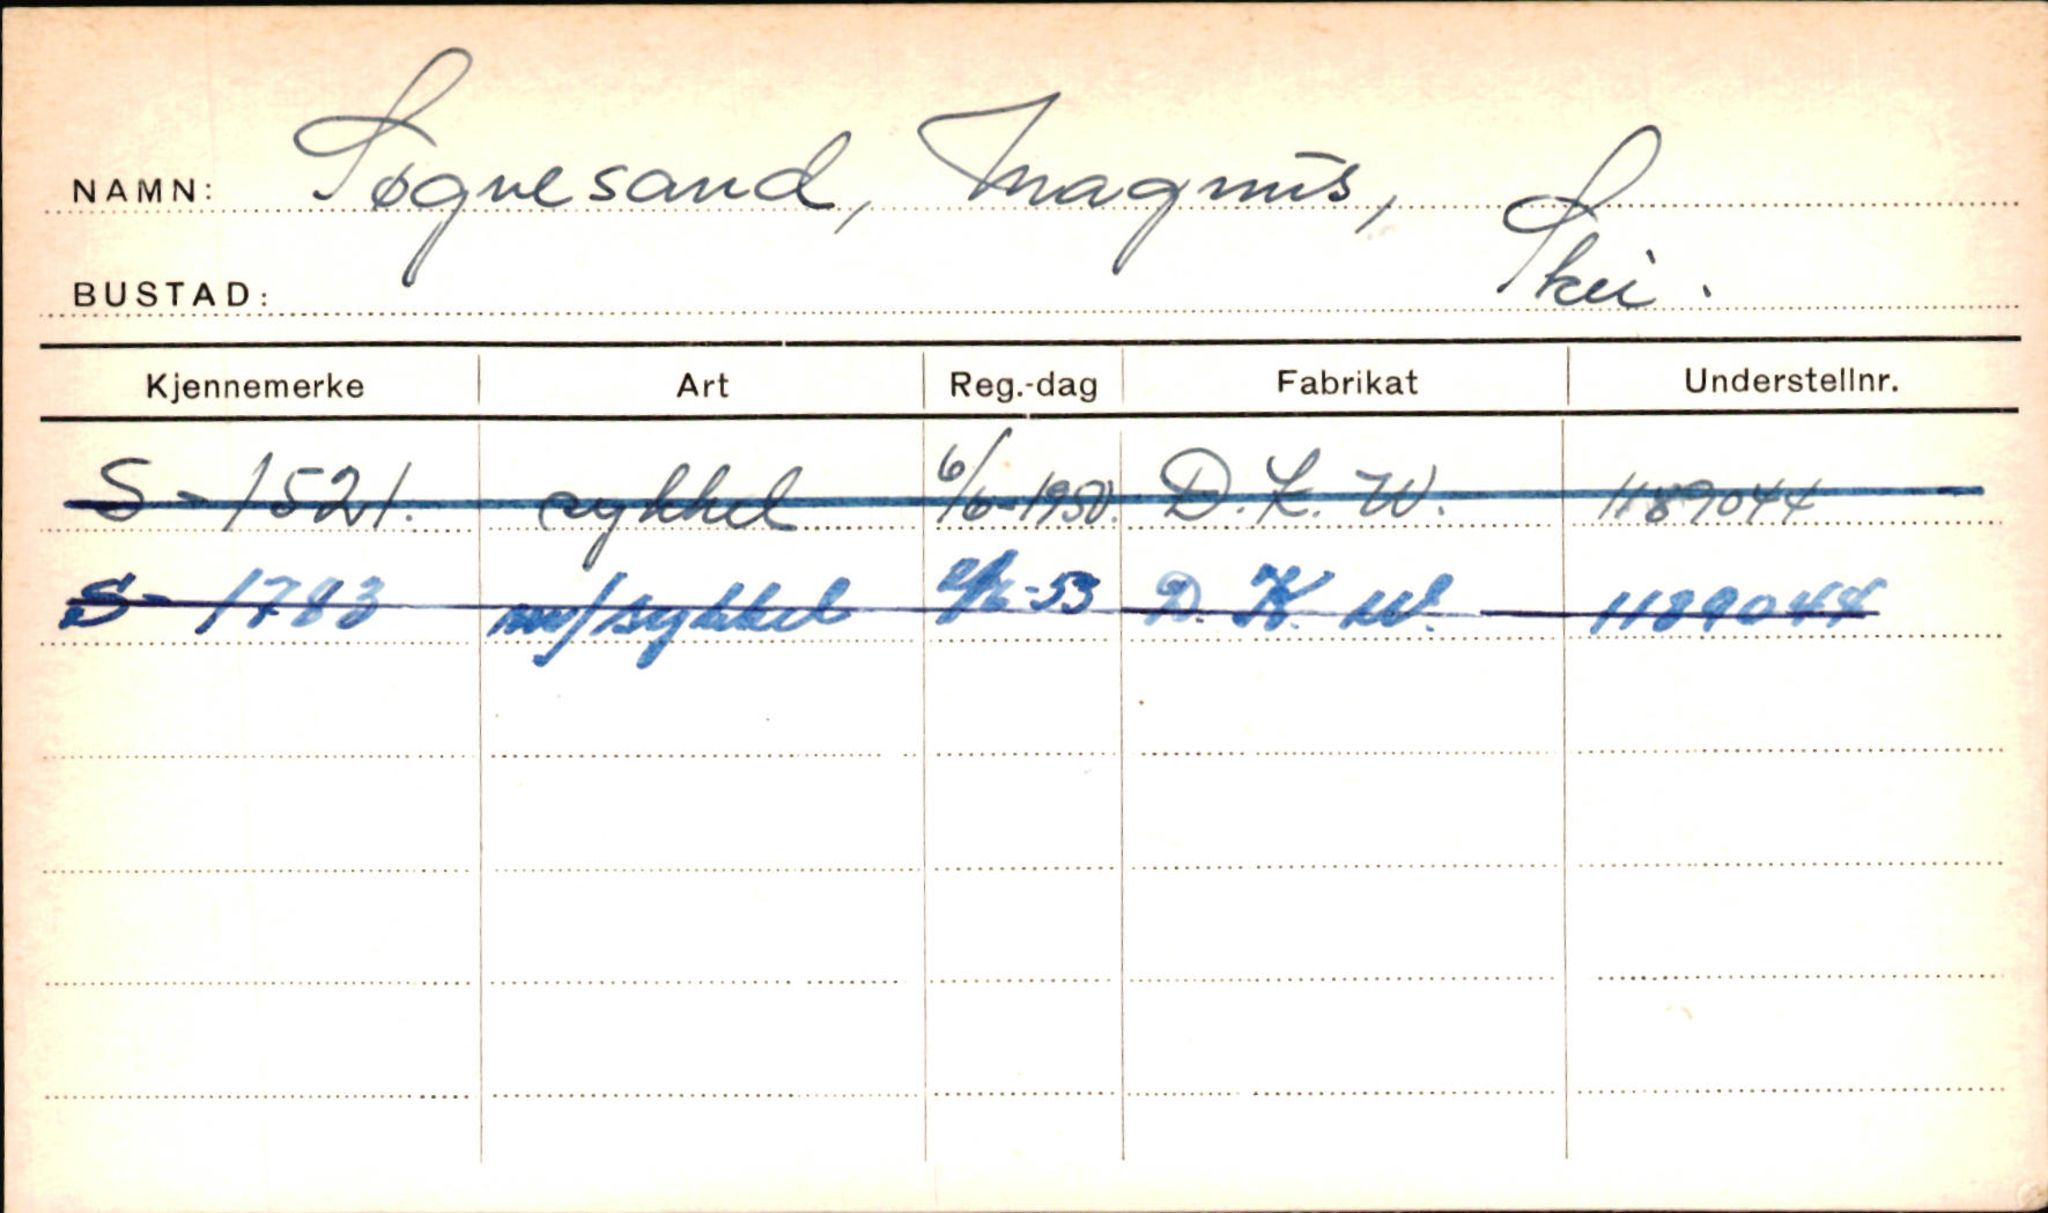 NAMN: Søgnesand, Magnus,
BUSTAD: Skei.
Kjennemerke Art Reg.-dag Fabrikat Understellnr.
S-1521. sykkel 6/6-1950. D.K.W. 1189044
S-1783 m/sykkel -53 D.K.W. 1189044